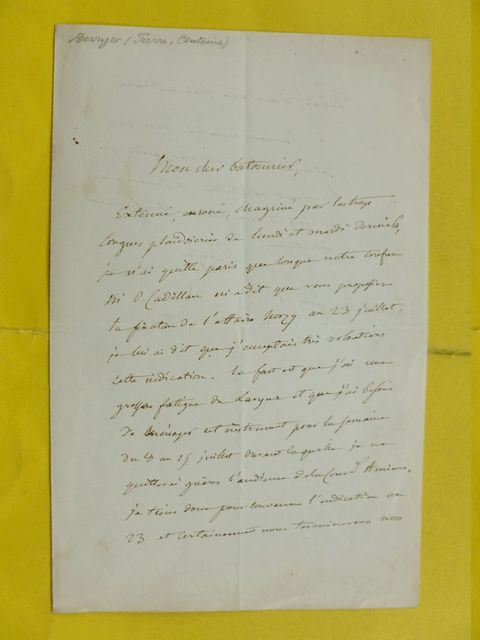 Berryer (Pierre, Antoine)
Mon cher batonnier,
Extenué, enroué, chagriné par les trop
longues plaidoieries de lundi et mardi derniers,
je n'ai quitté paris que lorsque notre confrère
Mr O Cadillan m'a dit que vous proposiez
la fixation de l'affaire au 23 juillet.
je lui ai dit que j'acceptais très volontiers
cette indication. le fait est que j'ai une
grosse fatigue de larynx et que j'ai besoin
de ménager cet instrument pour la semaine
du au 15 juillet durant laquelle je ne
quitterai guères l'audience de la Cour d'Amiens.
je tiens donc pour convenue l'indication au
23 et certainement nous terminerons nos